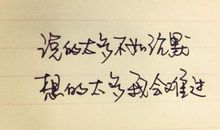 说的太多不如沉默
想的太多我会难过